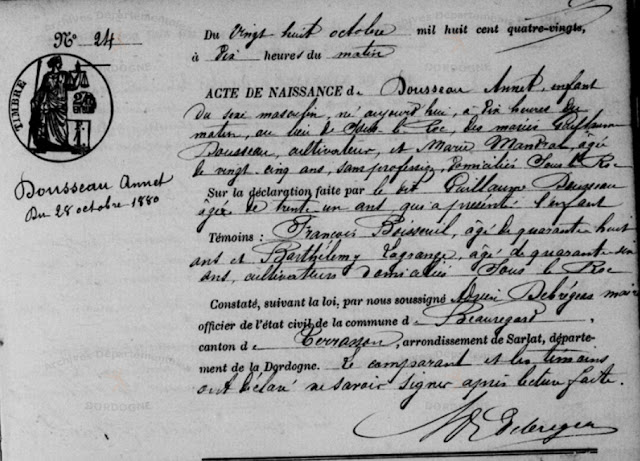 N° 24
TIMBRE
Dousseau Annet
Du 28 octobre 1880
Du vingt huit octobre mil huit cent quatre-vingts,
à dix heures du matin
ACTE DE NAISSANCE de Dousseau Annet, enfant
du sexe masculin, né aujourd'hui, à dix heures du
matin, au lieu de Sous le Roc, des mariés Guillaume
Dousseau, cultivateur, et Marie Mandral, agée
de vingt cinq ans, sans profession, domiciliés Sous le Roc
Sur la déclaration faite par le dit Guillaume Dousseau
âgée de trente un ans, qui a présenté l'enfant
Témoins : François Boisseuil, âgé de quarante huit
ans et Barthélemy Lagrange, âgé de quarante
ans, cultivateurs domiciliés Sous le Roc
Constaté, suivant la loi, par nous soussigné Debrégeas maire
officier de l'état civil de la commune de Beauregard,
canton de Terrasson, arrondissement de Sarlat, départe-
ment de la Dordogne. Le comparant et les témoins
ont déclaré ne savoir signer après lecture faite.
Debregeas